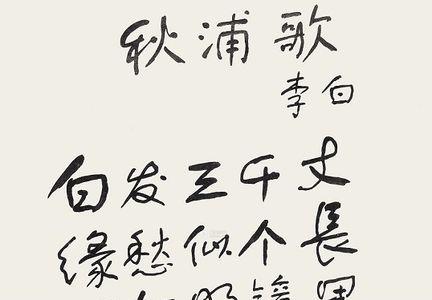 秋浦歌
李白
白发三千丈
缘愁似个長